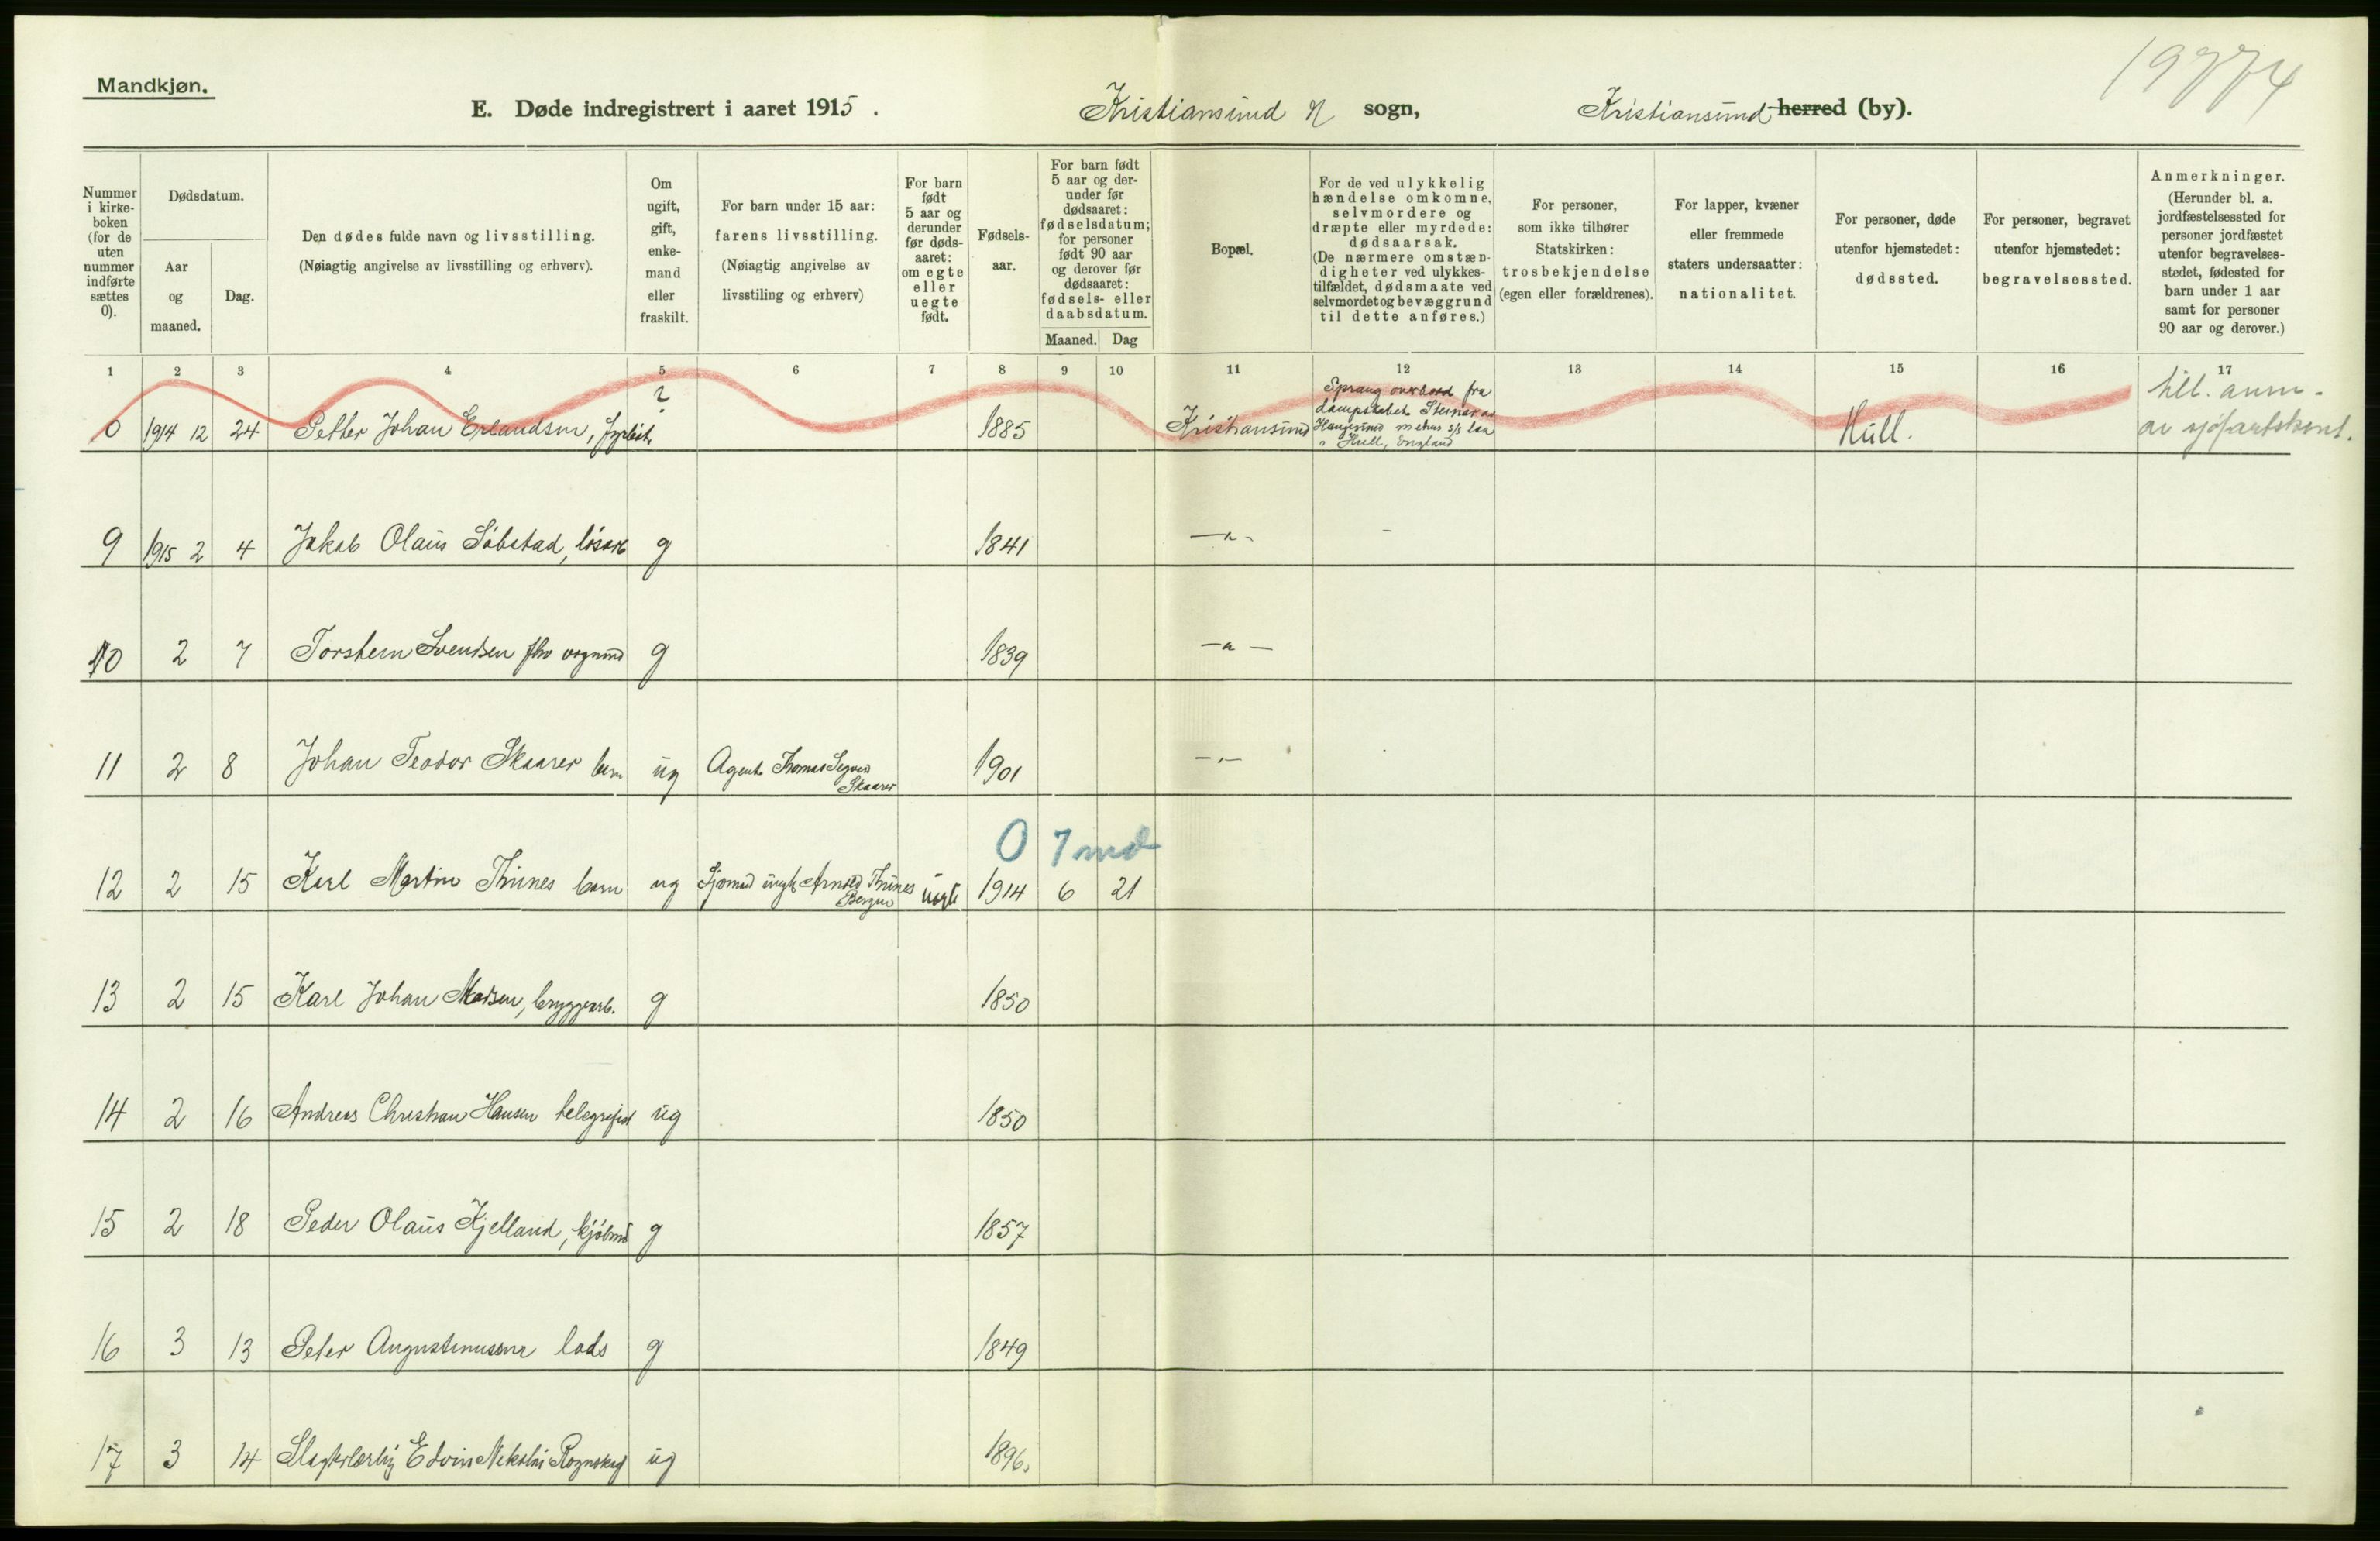 19774
Mandkjøn.
E. Døde indregistrert i aaret 1915. Kristiansund N sogn, Kristiansund herred (by).
Nummer i kirkeboken (for de uten nummer indførte sættes 0).
Dødsdatum.
Aar og maaned.
Dag.
Den dødes fulde navn og livsstilling.
(Nøiagtig angivelse av livsstilling og erhverv).
Om ugift, gift, enkemand eller fraskilt.
For barn under 15 aar:
farens livsstilling.
(Nøiagtig angivelse av
livsstiling og erhverv)
For barn født 5 aar og derunder før dødsaaret: om egte eller uegte født.
Fødselsaar.
For barn født 5 aar og derunder før dødsaaret: fødselsdatum; for personer født 90 aar og derover før dødsaaret: fødsels- eller daabsdatum.
Maaned. Dag
Bopæl.
For de ved ulykkelig hændelse omkomne, selvmordere og dræpte eller myrdede: dødsaarsak.
(De nærmere omstændigheter ved ulykkestilfældet, dødsmaate ved selvmordet og bevæggrund til dette anføres.)
For personer, som ikke tilhører Statskirken: trosbekjendelse (egen eller forældrenes).
For lapper, kvæner eller fremmede staters undersaatter: nationalitet.
For personer, døde utenfor hjemstedet: dødssted.
For personer, begravet utenfor hjemstedet: begravelsessted.
Anmerkninger.
(Herunder bl. a. jordfæstelsessted for personer jordfæstet utenfor begravelsesstedet, fødested for barn under 1 aar samt for personer 90 aar og derover.)
1 2 3 4 5 6 7 8 9 10 11 12 13 14 15 16 17
0 1914 12 24 Petter Johan Erlandsen, fyrbøt. ? 1885 Kristiansund Sprang overbord fra
dampskibet Steinar av
Haugesund mens s/s laa
i Hull, England Hull. till. anm.
av sjøfartskont.
9 1915 2 4 Jakob Olaus Söbstad, lösarb g 1841 —"—
10 2 7 Torstein Svendsen fhv vognmd g 1839 —"—
11 2 8 Johan Teodor Skaarer barn ug Agent Thomas Sigvard
Skaarer 1901 —"—
0 7 md
12 2 15 Karl Martin Thines barn ug Sjømand ungk Arnold Thines
Bergen uegte 1914 6 21
13 2 15 Karl Johan Madsen, bryggearb. g 1850
14 2 16 Andreas Christian Hansen telegrafist ug 1850
15 2 18 Peder Olaus Kjelland, kjöbmd g 1857
16 3 13 Peter Augustinussen lods g 1849
17 3 14 Slagterlærling Edvin Nekolai Rognskog ug 1896.